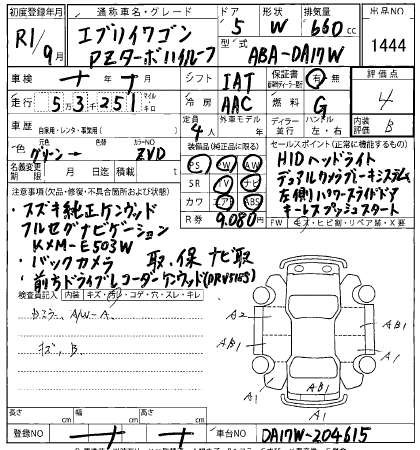 初度登録年月 通称車名・グレード ドア 形状 排気量 出品NO
R1/9月 エブリイワゴン 5 W 660cc 1444
PZターボハイルーフ 型式 ABA-DA17W
車検 年 月 シフト IAT 保証書 有 無 評価点
走行 5万3千251 マイル キロ 冷房 AAC 燃料 G 4
車歴 自家用・レンタ・事業用( ) 定員 4人 外車モデル 年 ディーラー 並行 ハンドル 左・右 内装評価 B
色 グリーン→ 替色 カラーNO ZVD 装備品(純正品に限る) セールスポイント(正常に機能するもの)
名義変更期限 月 日迄 積載 t
PS PW AW HIDヘッドライト
SR TV ナビ デュアルカメラブレーキシステム
カワ エアB ABS 左側パワースライドドア
R券 9.080円 キーレスプッシュスタート
注意事項(欠品・修復・不具合箇所および状態) FW キズ・ヒビ割・リペア跡・X要
・スズキ純正ケンウッド
フルセグナビゲーション
KXM-E503W
・バックカメラ 取、保 ナビ取
・前方ドライブレコーダーケンウッド(DRV515S)
検査員記入 内装 キズ・汚レ・コゲ・穴・スレ・キレ
A/W-A.
キズ、B
A2 AB1
AB1 A1
A1 AB1
A1
長さ cm 幅 cm 高さ cm
登録NO 車台NO DA17W-204615